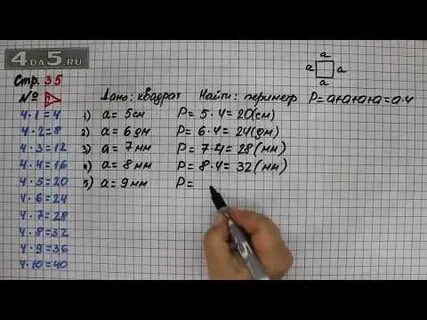 4DA5.RU
Стр. 35
№ 3
4 · 1 = 4
4 · 2 = 8
4 · 3 = 12
4 · 4 = 16
4 · 5 = 20
4 · 6 = 24
4 · 7 = 28
4 · 8 = 32
4 · 9 = 36
4 · 10 = 40
Дано: квадрат Найти: периметр P = a+a+a+a = a · 4
a
a a
a
1) a = 5 см P = 5 · 4 = 20 (см)
2) a = 6 дм P = 6 · 4 = 24 (дм)
3) a = 7 мм P = 7 · 4 = 28 (мм)
4) a = 8 мм P = 8 · 4 = 32 (мм)
5) a = 9 мм P =